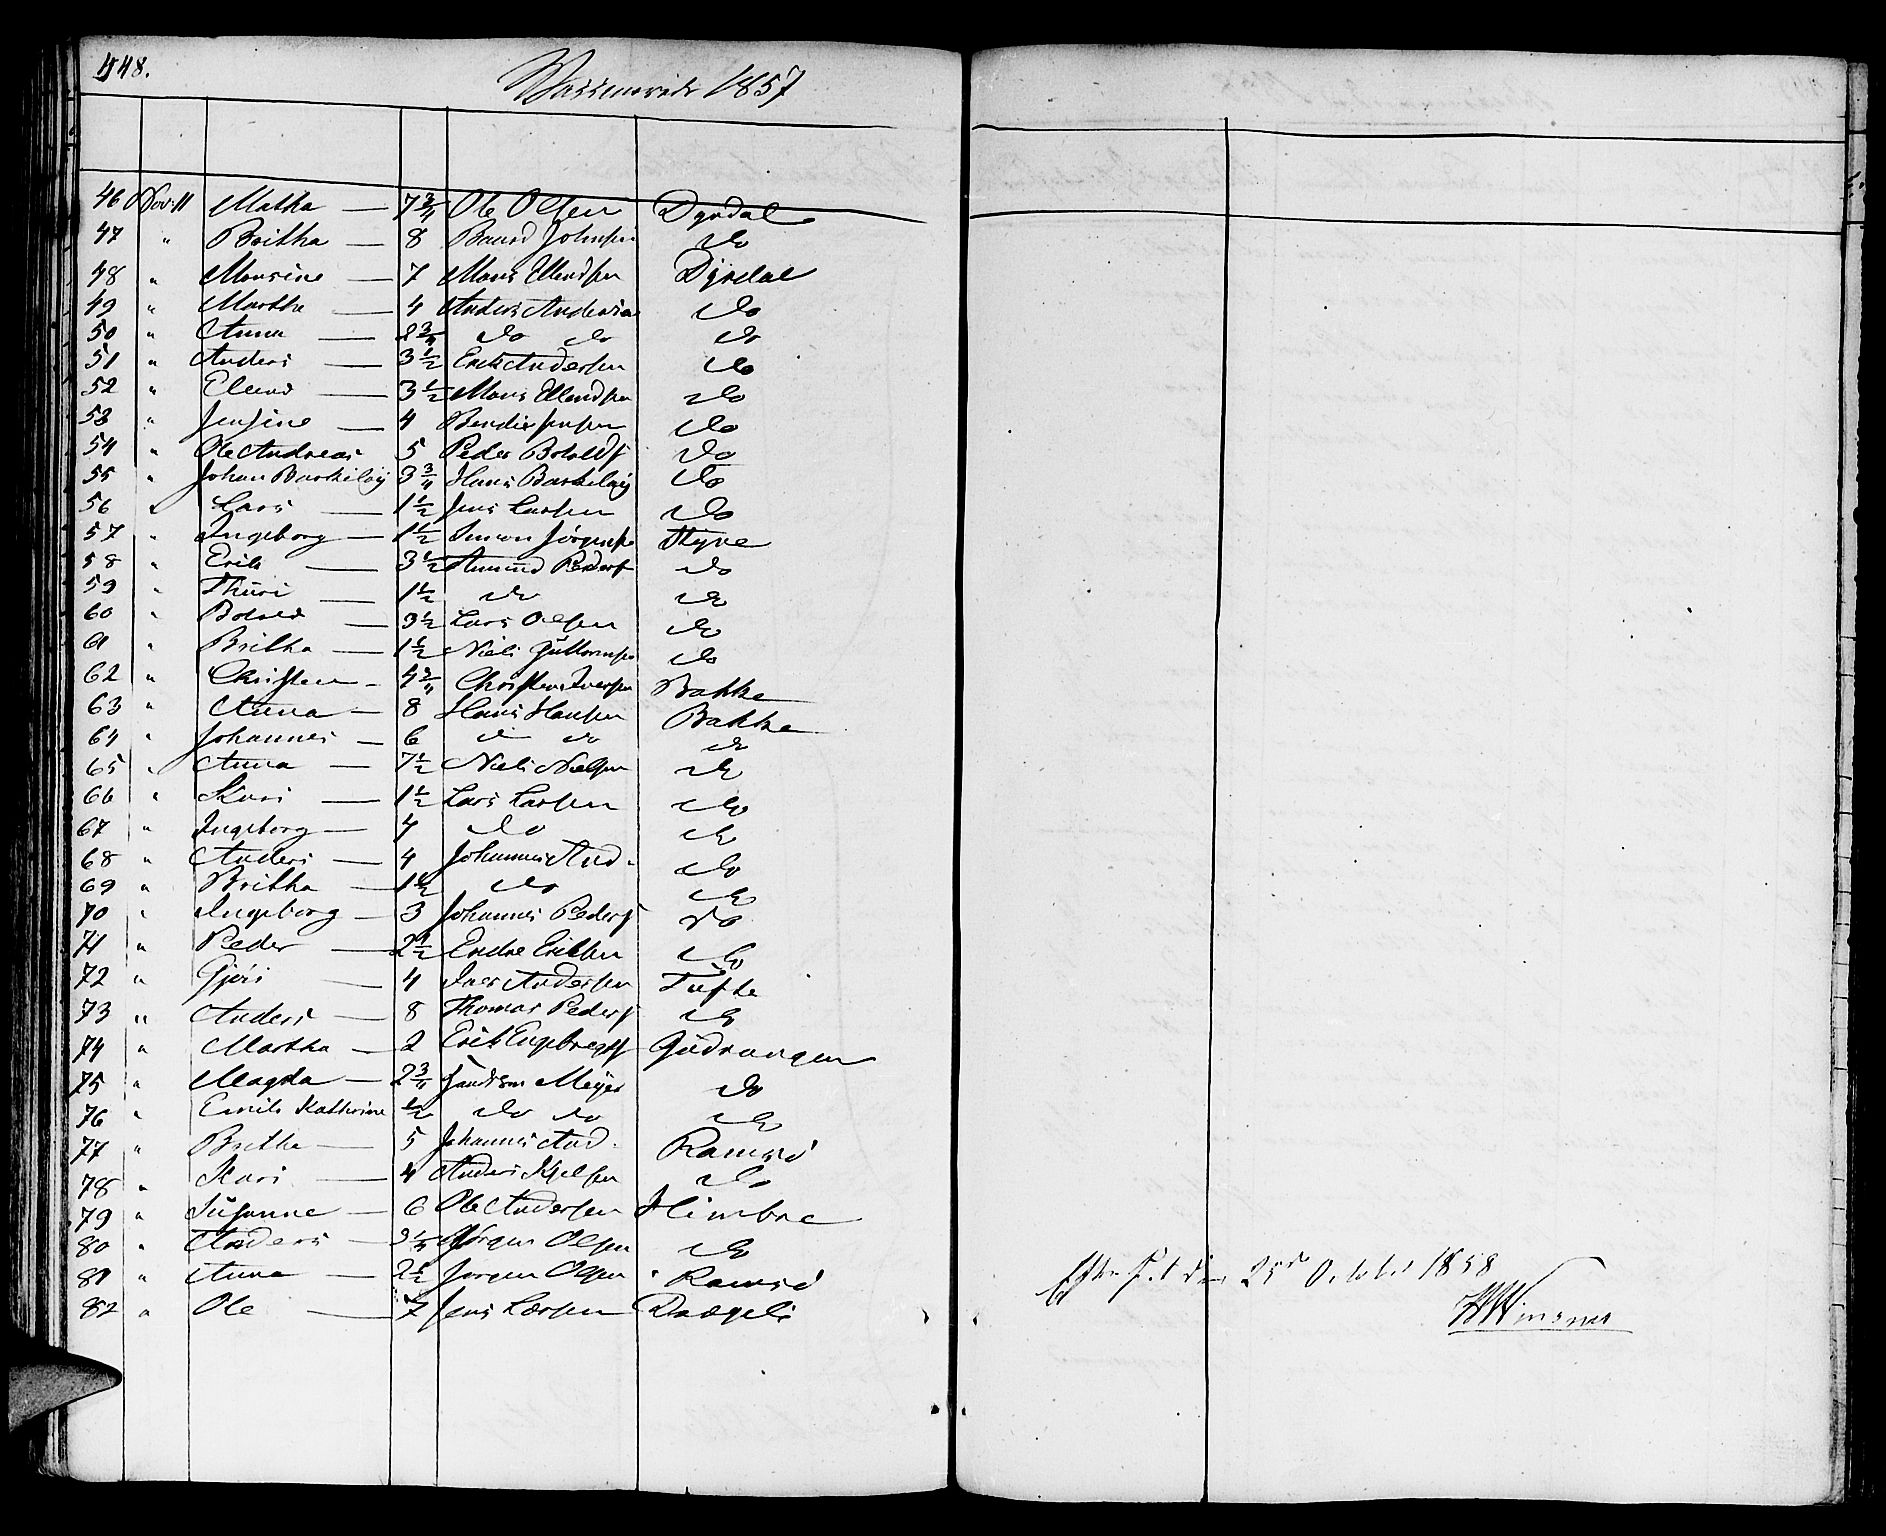 448.
Vaccinerede 1857
46 Nov: 11 Matha — 7 3/4 Ole Olsen Dyrdal
47 " Britha — 8 Baard Johnsen do
48 " Monsine — 7 Mons Ellendsen Dyrdal
49 " Martha — 4 Anders Anderse do
50 " Anna — 2 3/4 do do do
51 " Anders — 3 1/2 Erik Andersen do
52 " Elend — 3 1/2 Mons Ellendsen do
53 " Jensine — 4 Bendix Jensen do
54 " Ole Andreas 5 Peder Botolds do
55 " Johan 3 3/4 Hans do
56 " Lars — 1 1/2 Jens Larsen do
57 " Ingeborg — 1 1/2 Simon Jørgense Styve
58 " Erik — 3 1/2 Amund Peders do
59 " Thuri — 1 1/2 do do
60 " Botold — 3 1/2 Lars Olsen do
61 " Britha — 1 1/2 Niels Guttormse do
62 " Christen — 4 3/4 Christen Iversen Bakke
63 " Anna — 8 Hans Hansen Bakke
64 " Johannes — 6 do do do
65 " Anna — 7 1/2 Niels Nielsen do
66 " Kari — 1 1/2 Lars Larsen do
67 " Ingeborg — 4 do do
68 " Anders — 4 Johannes And. do
69 " Britha — 1 1/2 do do
70 " Ingeborg — 3 Johannes Peders do
71 " Peder — 2 1/2 Endre Eriksen do
72 " Gjøri — 4 Iver Andersen Tufte
73 " Anders — 8 Thomas Peders do
74 " Martha — 2 Erik Engebregts Gudvangen
75 " Magda — 2 3/4 Meyer do
76 " Emili Kathrine 1/2 do do do
77 " Britha — 5 Johannes And. Ramsø
78 " Kari — 4 Anders Kjelsen do
79 " Susanne — 6 Ole Andersen Himbre
80 " Anders — 3 1/4 Jørgen Olsen do
81 " Anna — 2 1/2 Jørgen Olsen Ramsø
82 " Ole — 7 Jens Larsen Drægeli
25de October 1858